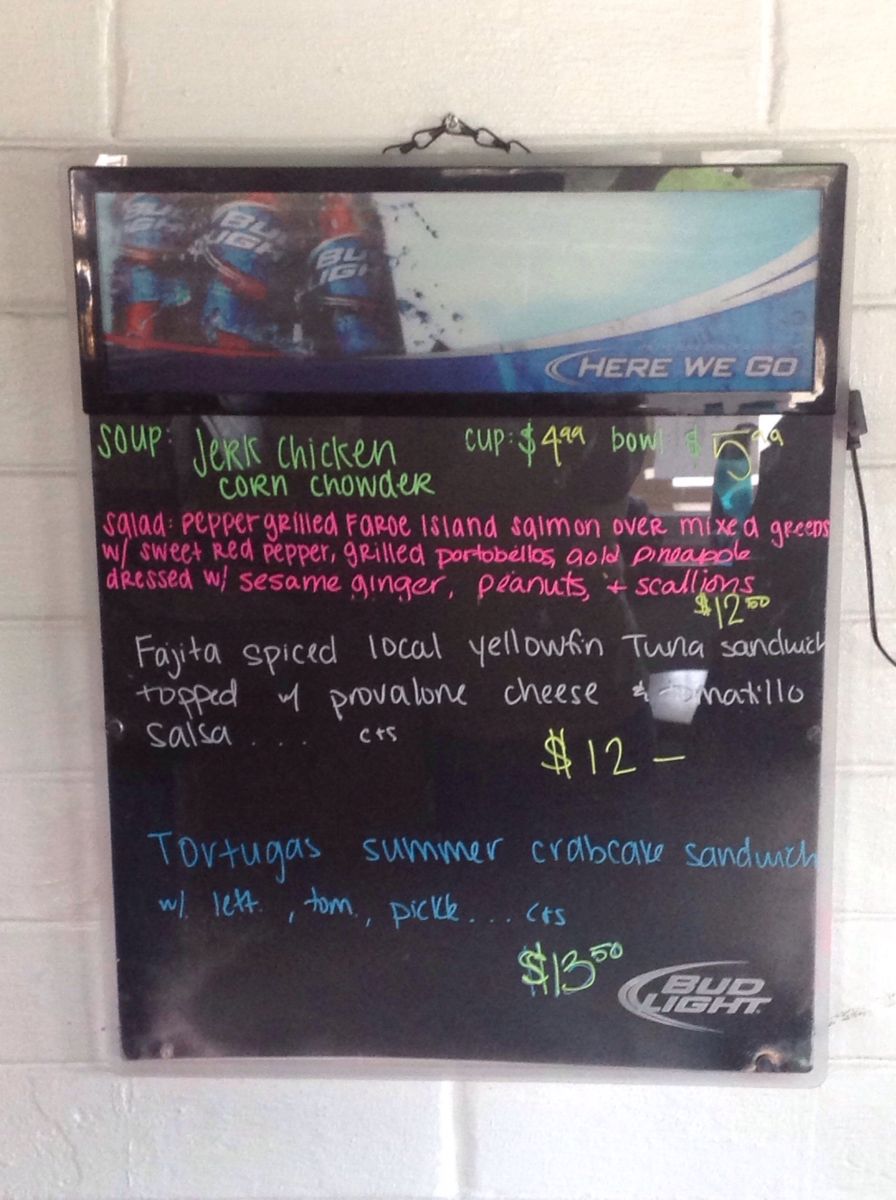 BUD LIGHT
BUD LIGHT
HERE WE GO
SOUP: JERK CHICKEN CUP: $4.99 bowl $5.99
CORN CHOWDER
salad: PEPPER GRILLED FAROE ISLAND salmon over mixed greens
w/ sweet Red pepper, grilled portobellos, gold pineapple
dRessed w/ sesame ginger, peanuts, + scallions
$12.50
Fajita spiced local yellowfin Tuna sandwich
topped w/ provalone cheese & tomatillo
salsa .... cts
$12 —
Tortugas summer crabcake sandwich
w/ lett. , tom., pickle... cts
$13.50
BUD
LIGHT